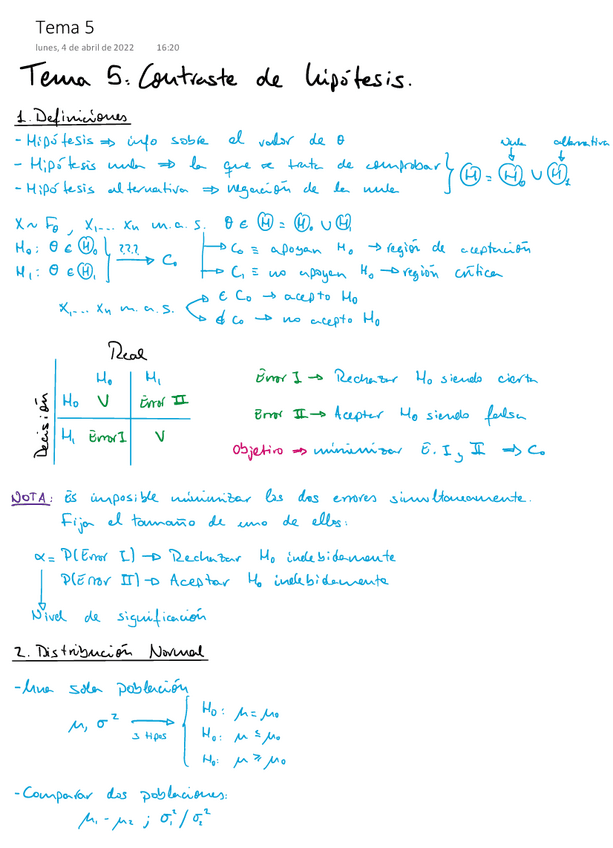 Tema 5
lunes, 4 de abril de 2022 16:20
Tema 5: Contraste de hipótesis.
1. Definiciones
- Hipótesis ⇒ info sobre el valor de θ
- Hipótesis nula ⇒ la que se trata de comprobar
- Hipótesis alternativa ⇒ negación de la nula
Nula alternativa
Ⓗ = Ⓗ₀ ∪ Ⓗ₁
X ~ F_θ, X₁... Xn m.a.s. θ ∈ Ⓗ = Ⓗ₀ ∪ Ⓗ₁
H₀: θ ∈ Ⓗ₀ ??? → C₀ → C₀ ≡ apoyan H₀ → región de aceptación
H₁: θ ∈ Ⓗ₁ → C₁ ≡ no apoyan H₀ → región crítica
X₁... Xn m.a.s. → ∈ C₀ → acepto H₀
→ ∉ C₀ → no acepto H₀
Real
H₀ H₁
Decisión
H₀ V Error II
H₁ Error I V
Error I → Rechazar H₀ siendo cierta
Error II → Aceptar H₀ siendo falsa
Objetivo ⇒ minimizar E. I y II ⇒ C₀
NOTA: Es imposible minimizar los dos errores simultaneamente.
Fijar el tamaño de uno de ellos:
α = P(Error I) → Rechazar H₀ indebidamente
P(Error II) → Aceptar H₀ indebidamente
Nivel de significación
2. Distribución Normal
- Una sola población
μ, σ² → 3 tipos
H₀: μ = μ₀
H₀: μ ≤ μ₀
H₀: μ ≥ μ₀
- Comparar dos poblaciones:
μ₁ - μ₂ ; σ₁² / σ₂²